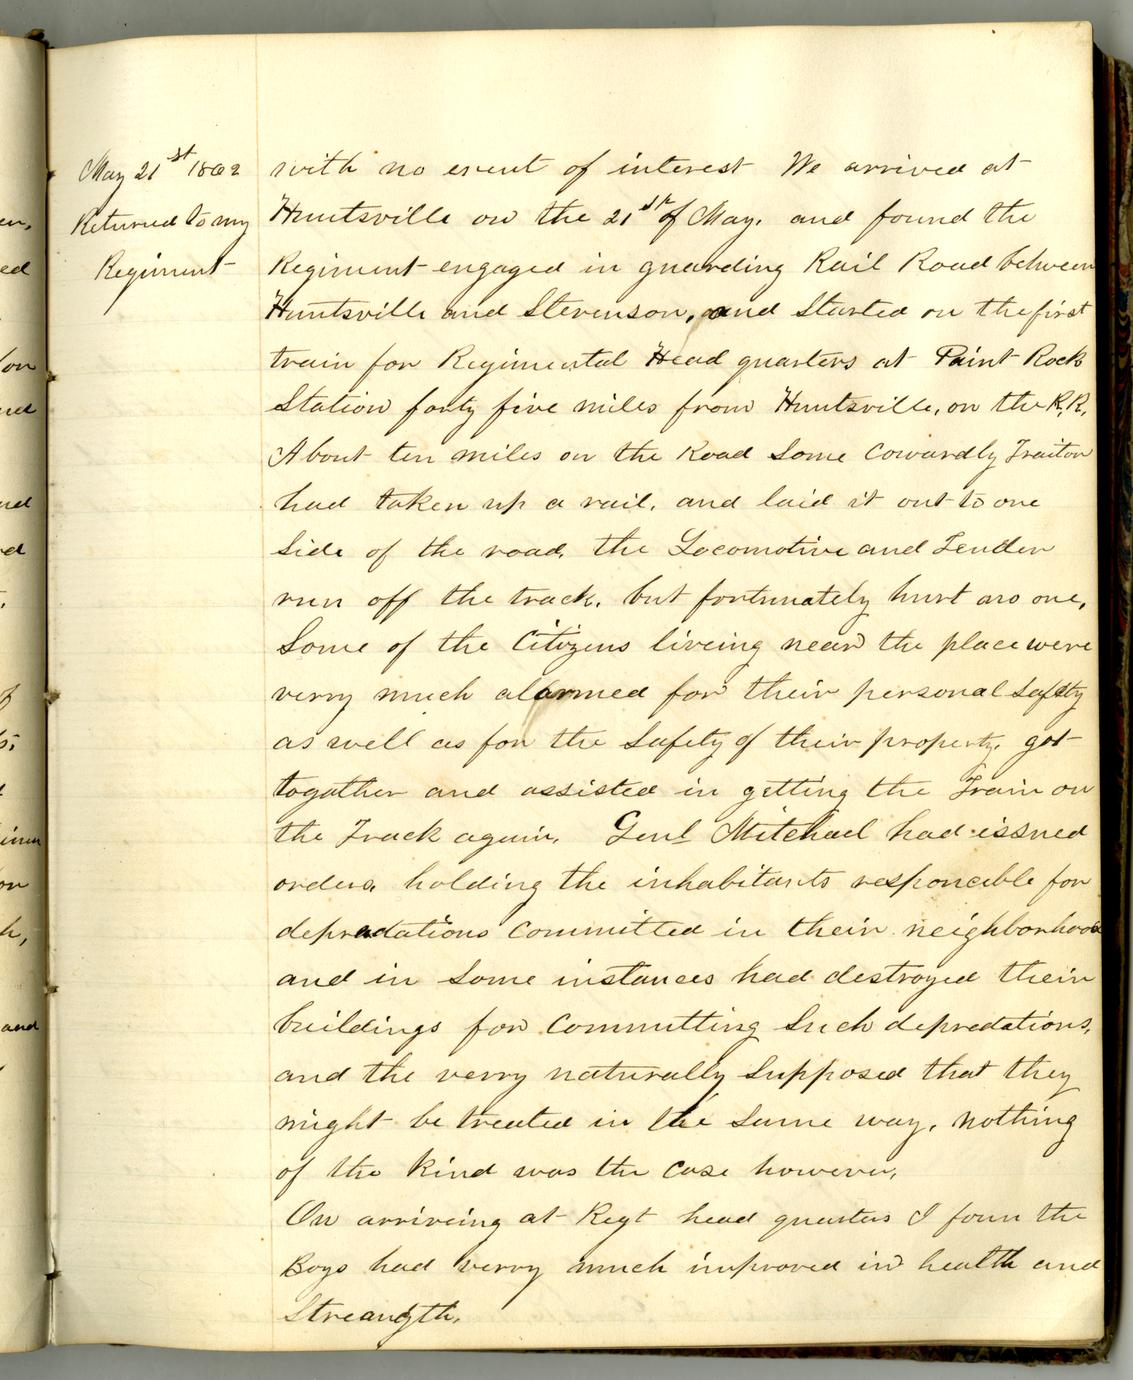 May 21st 1862
Returned to my
Regiment
with no event of interest We arrived at
Huntsville on the 21st of May. and found the
Regiment engaged in guarding Rail Road between
Huntsville and Stevenson, and Started on the first
train for Regimental Head quarters at Paint Rock
Station forty five miles from Huntsville, on the R,R,
About ten miles on the Road Some Cowardly Traitor
had taken up a rail, and laid it out to one
Side of the road, the Locomotive and Tender
run off the track, but fortunately hurt no one,
Some of the Citizens liveing near the place were
verry much alarmed for their personal Safety
as well as for the Safety of their property, got
togather and assisted in getting the Train on
the Track again, Genl Mitchael had issued
orders holding the inhabitants responceble for
depradations Committed in their neighborhood
and in Some instances had destroyed their
buildings for Committing Such depredations,
and the verry naturally Supposed that they
might be treated in the Same way, nothing
of the Kind was the Case however,
On arriveing at Regt head quarters I foun the
Boys had verry much improved in health and
Streangth,